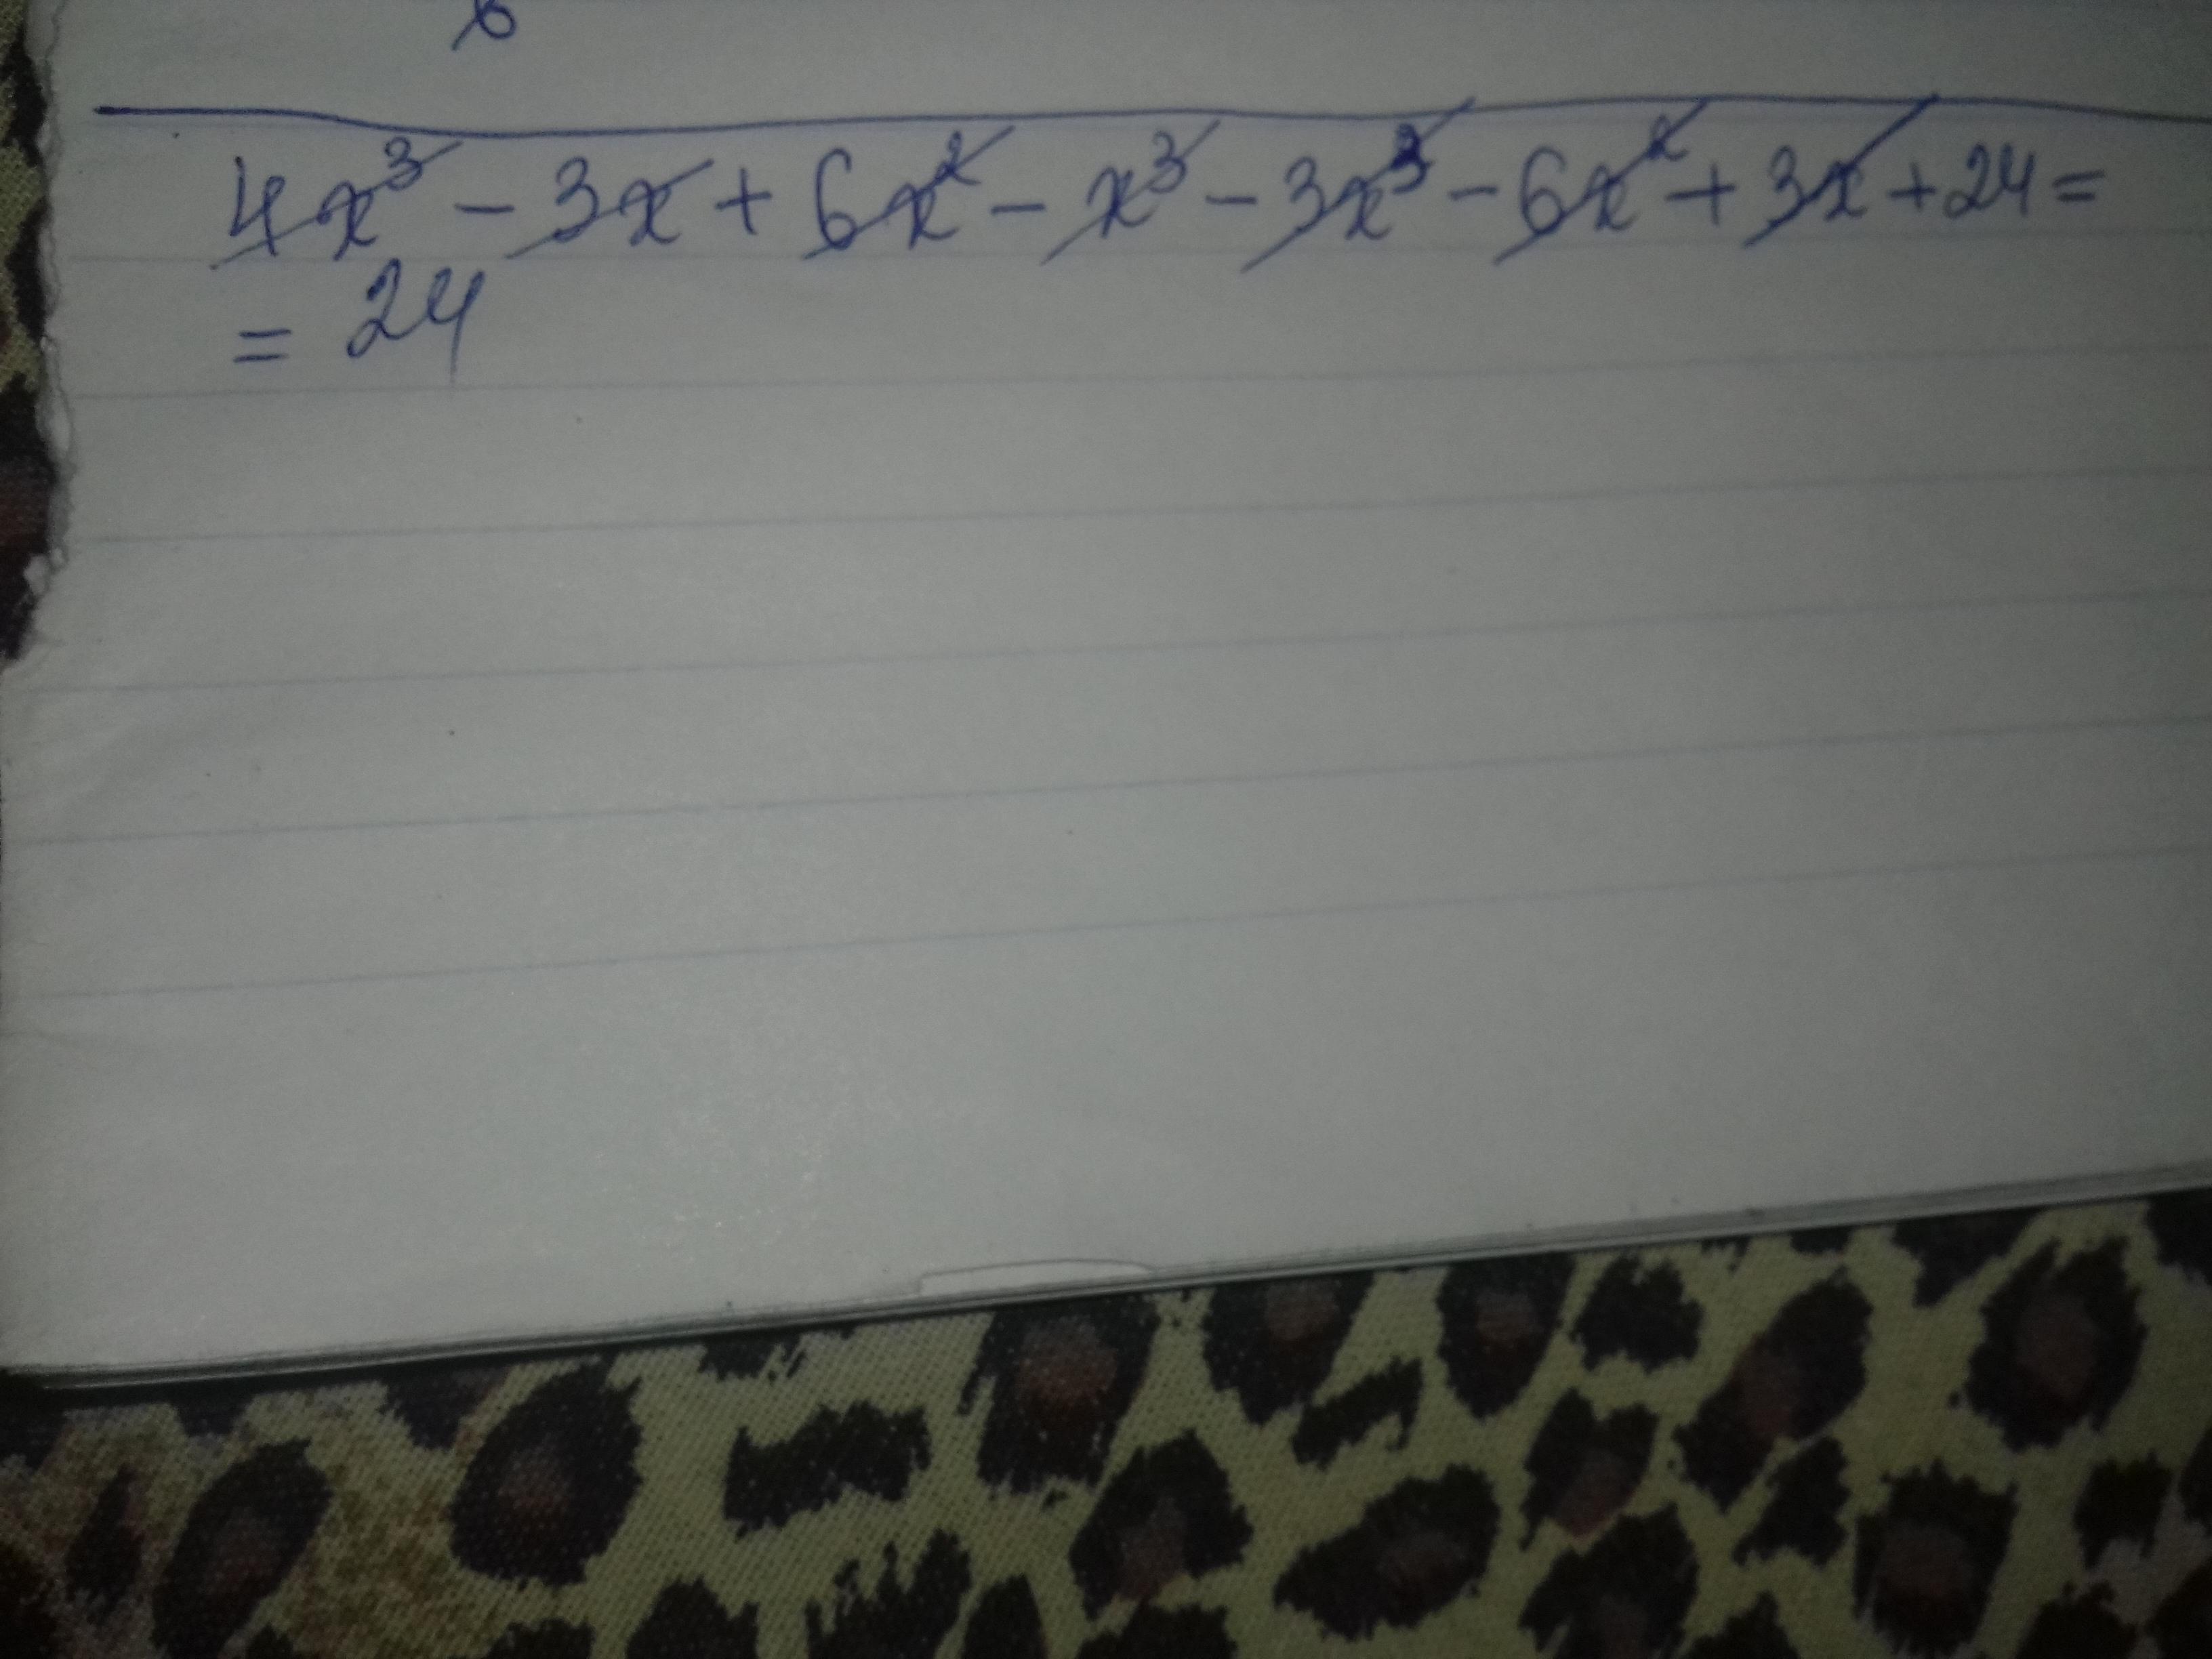 4x³ - 3x + 6x² - x³ - 3x³ - 6x² + 3x + 24 =
= 24